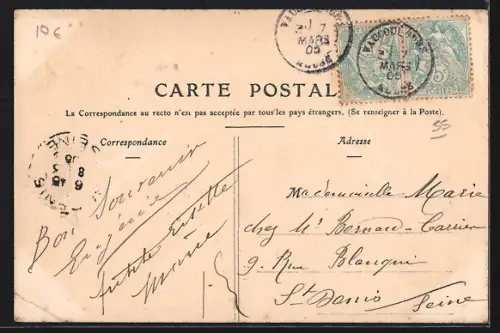 10€
7
MARS
05
7
MARS
05
5
CARTE POSTALE
La Correspondance au recto n'est pas acceptée par tous les pays étrangers. (Se renseigner à la Poste).
Correspondance
Adresse
55
Bon Souvenir
Eugénie
Mademoiselle Marie
chez Mr Bernard-Carrier
9. Rue Blanqui
St Denis Seine